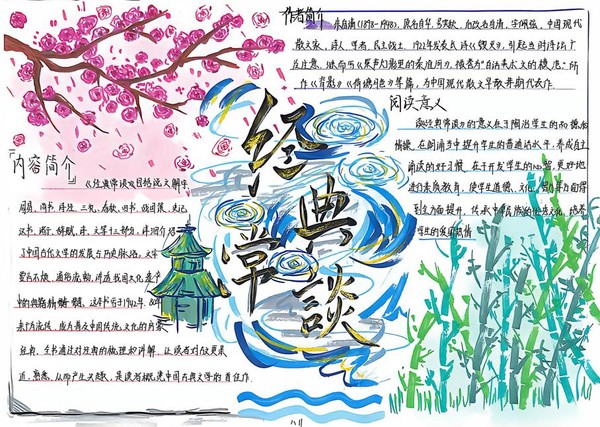 经典常谈
作者简介
朱自清(1898-1948),原名自华,号实秋,后改名自清,字佩弦,中国现代
散文家、诗人、学者、民主战士。1922年发表长诗《毁灭》,引起当时诗坛广
泛注意,继而写《桨声灯影里的秦淮河》,被誉为“白话美术文的模范”。所
作《背影》《荷塘月色》等篇,为中国现代散文早期代表作。
阅读意义
读《经典常谈》的意义在于陶冶学生的
情操,在朗诵中提升学生的普通话水平,养成自主
阅读的好习惯,在于开发学生的心智,更好地
进行素质教育,使学生道德、文化、智力等方面得
到全方面提升,传承中华民族的优秀文化,培养
学生的爱国热情
「内容简介」
《经典常谈》包括说文解字、
周易、尚书、诗经、三礼、春秋、四书、战国策、史记
汉书、诸子、辞赋、诗、文等十三部分,详细介绍
了中国古代文学的发展与历史脉络,文字
通俗流畅,讲透我国文化
这本书写于1942年
经典,全书通过对经典的梳理和讲解,让读者对故更亲
近、熟悉,从而产生兴趣,是读者概览中国古典文学的首佳作。